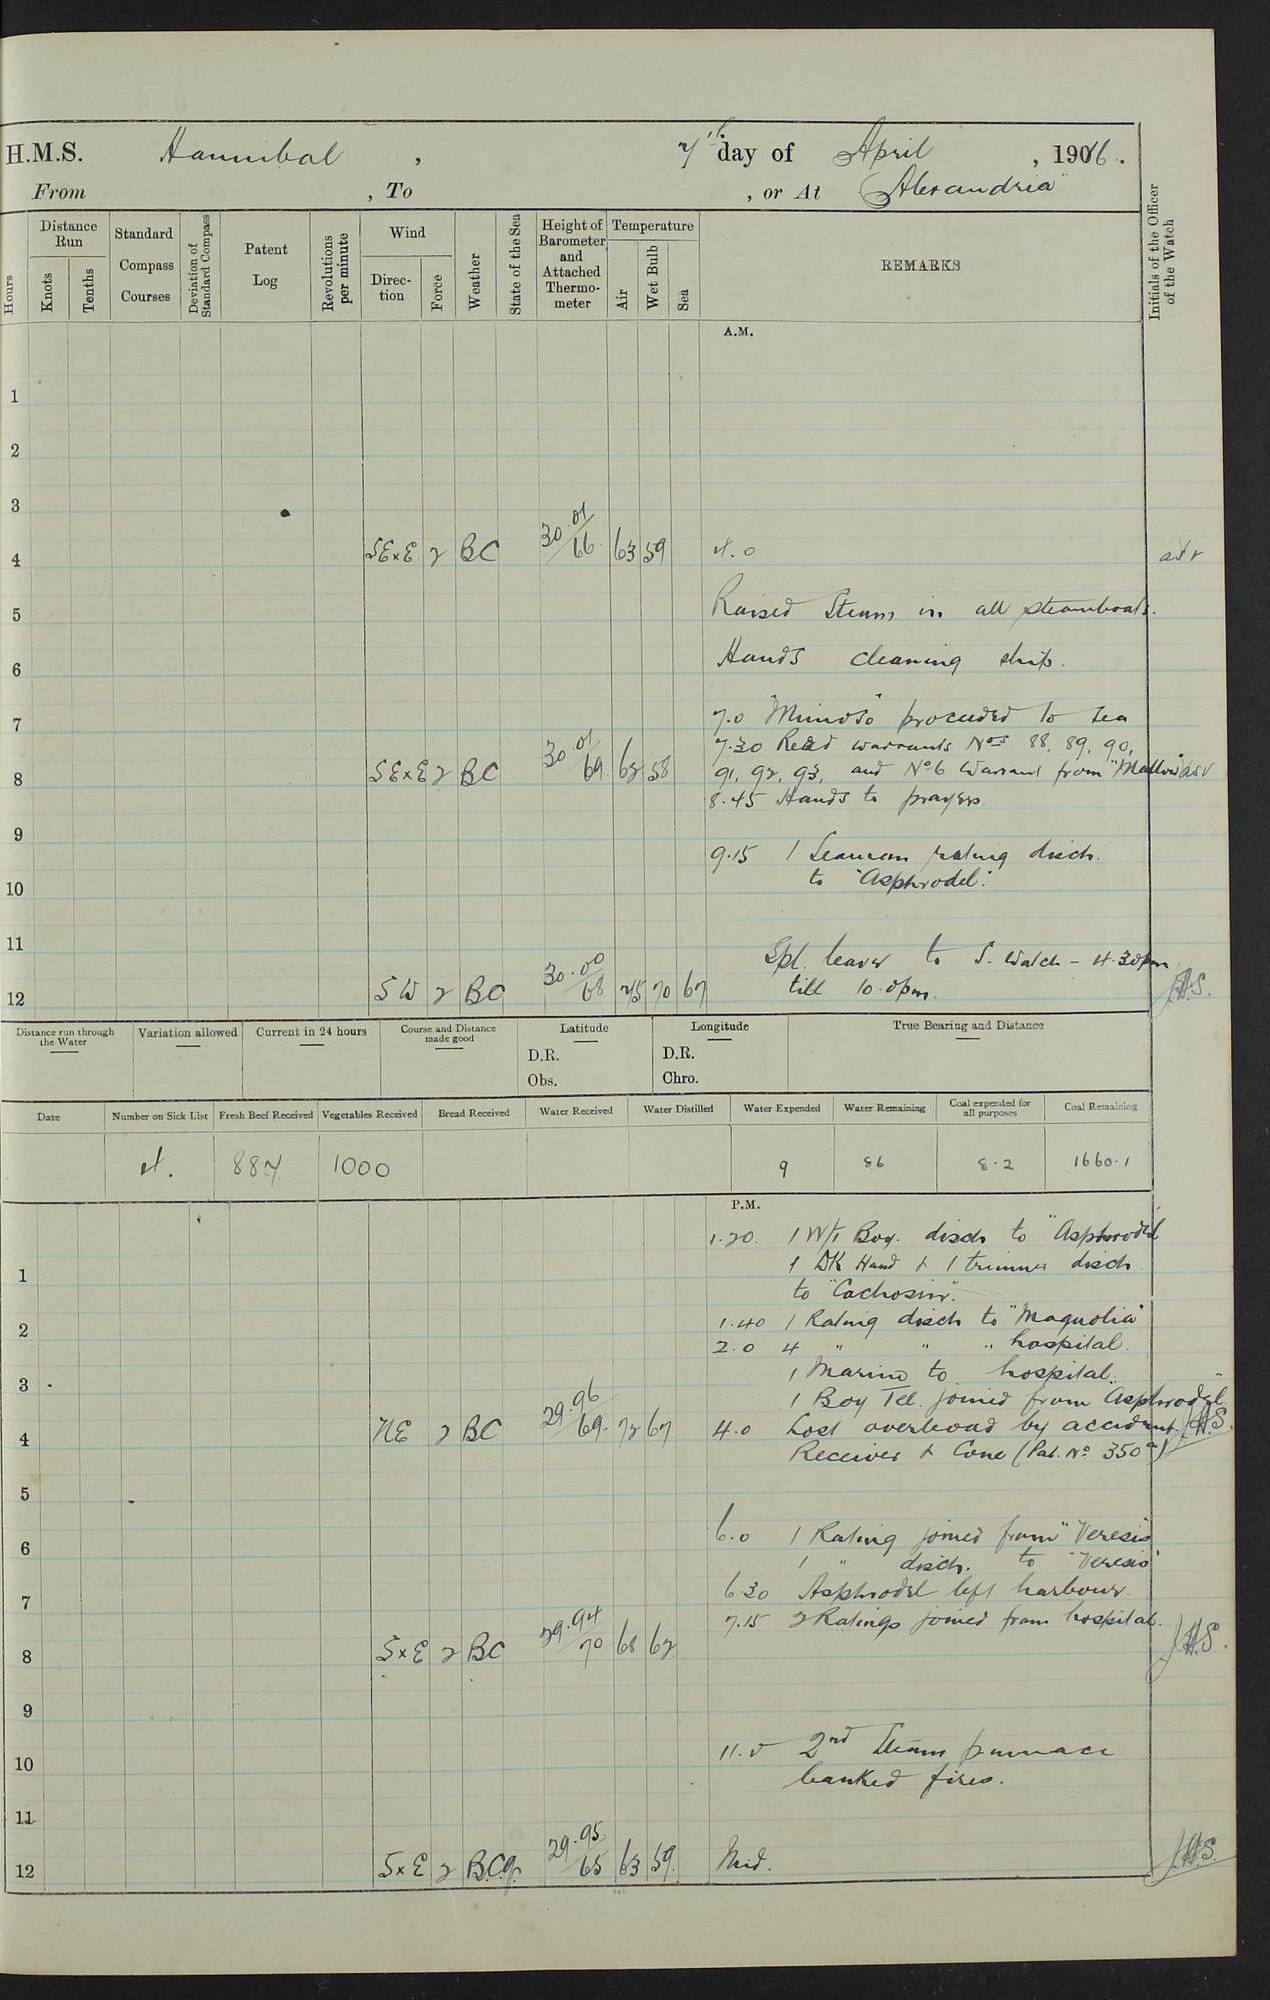 H.M.S. Hannibal , 7th day of April , 1916.
From , To , or At Alexandria
Hours
Distance Run
Knots
Tenths
Standard Compass Courses
Deviation of Standard Compass
Patent Log
Revolutions per minute
Wind
Direc-tion
Force
Weather
State of the Sea
Height of Barometer and Attached Thermo-meter
Temperature
Air
Wet Bulb
Sea
REMARKS
Initials of the Officer of the Watch
A.M.
1
2
3
4 SExE 2 BC 30.01/66 63 59 4.0
5 Raised Steam in all steamboats.
6 Hands cleaning ship.
7 7.0 "Mimosa" proceeded to sea
7.30 Read warrants Nos 88, 89, 90,
8 SExE 2 BC 30.01/69 62 58 91, 92, 93, and No 6 Warrant from "Mallow"
8.45 Hands to prayers
9
9.15 1 Seaman rating disch.
10 to "Asphrodel".
11 Spl. leave to S. Watch - 4.30pm
12 SW 2 BC 30.00/68 75 70 67 till 10.0pm. JHS.
Distance run through the Water
Variation allowed
Current in 24 hours
Course and Distance made good
Latitude
D.R.
Obs.
Longitude
D.R.
Chro.
True Bearing and Distance
Date
Number on Sick List
Fresh Beef Received
Vegetables Received
Bread Received
Water Received
Water Distilled
Water Expended
Water Remaining
Coal expended for all purposes
Coal Remaining
4. 887 1000 9 86 8.2 1660.1
P.M.
1.20. 1 W/T Boy. disch to "Asphrodel
1 1 DK Hand & 1 trimmer disch
to "Cachosin".
2 1.40 1 Rating disch to "Magnolia"
2.0 4 " " " hospital.
3 1 Marine to hospital.
1 Boy Tel. joined from "Asphrodel"
4 NE 2 BC 29.96/69. 72 67 4.0 Lost overboard by accident JHS.
Receiver & Cone (Pat. No 350a)
5
6 6.0 1 Rating joined from "Veresis"
1 " disch. to "Veresis"
7 6.30 Asphrodel left harbour.
7.15 2 Ratings joined from hospital.
8 SxE 2 BC 29.94/70 68 62 JHS.
9
10 11.0 2nd Steam pinnace
banked fires.
11
12 SxE 2 B.C.q. 29.95/65 63 59. Mid. JHS.